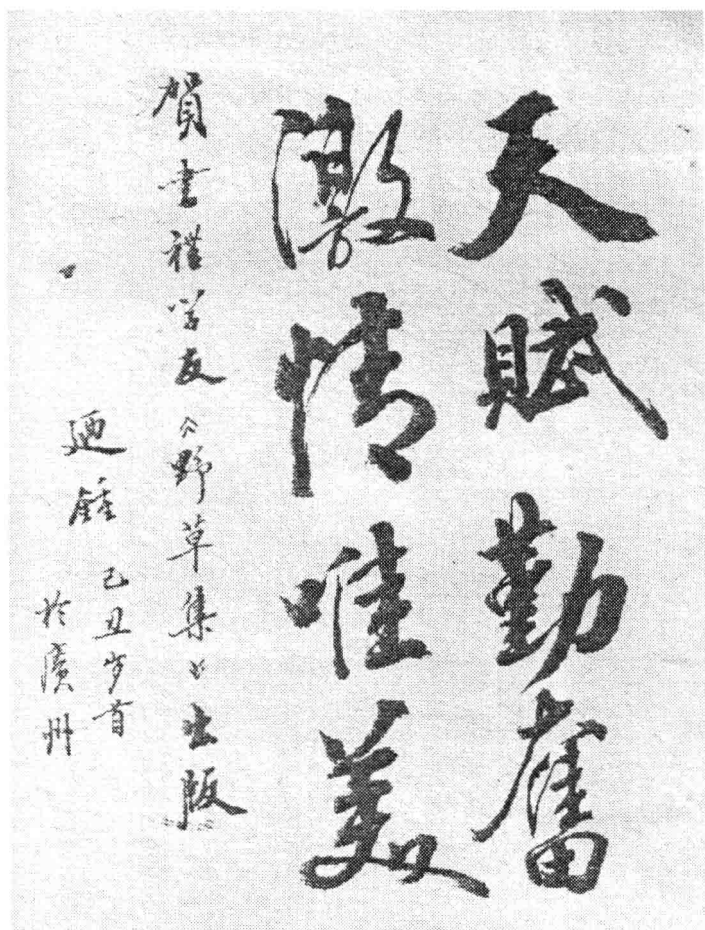 天賦勤奮
激情唯美
賀書禮学友《野草集》出版
廼鍾
己丑岁首
於廣州